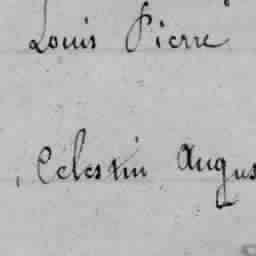 Louis Pierre
Celestin Augus